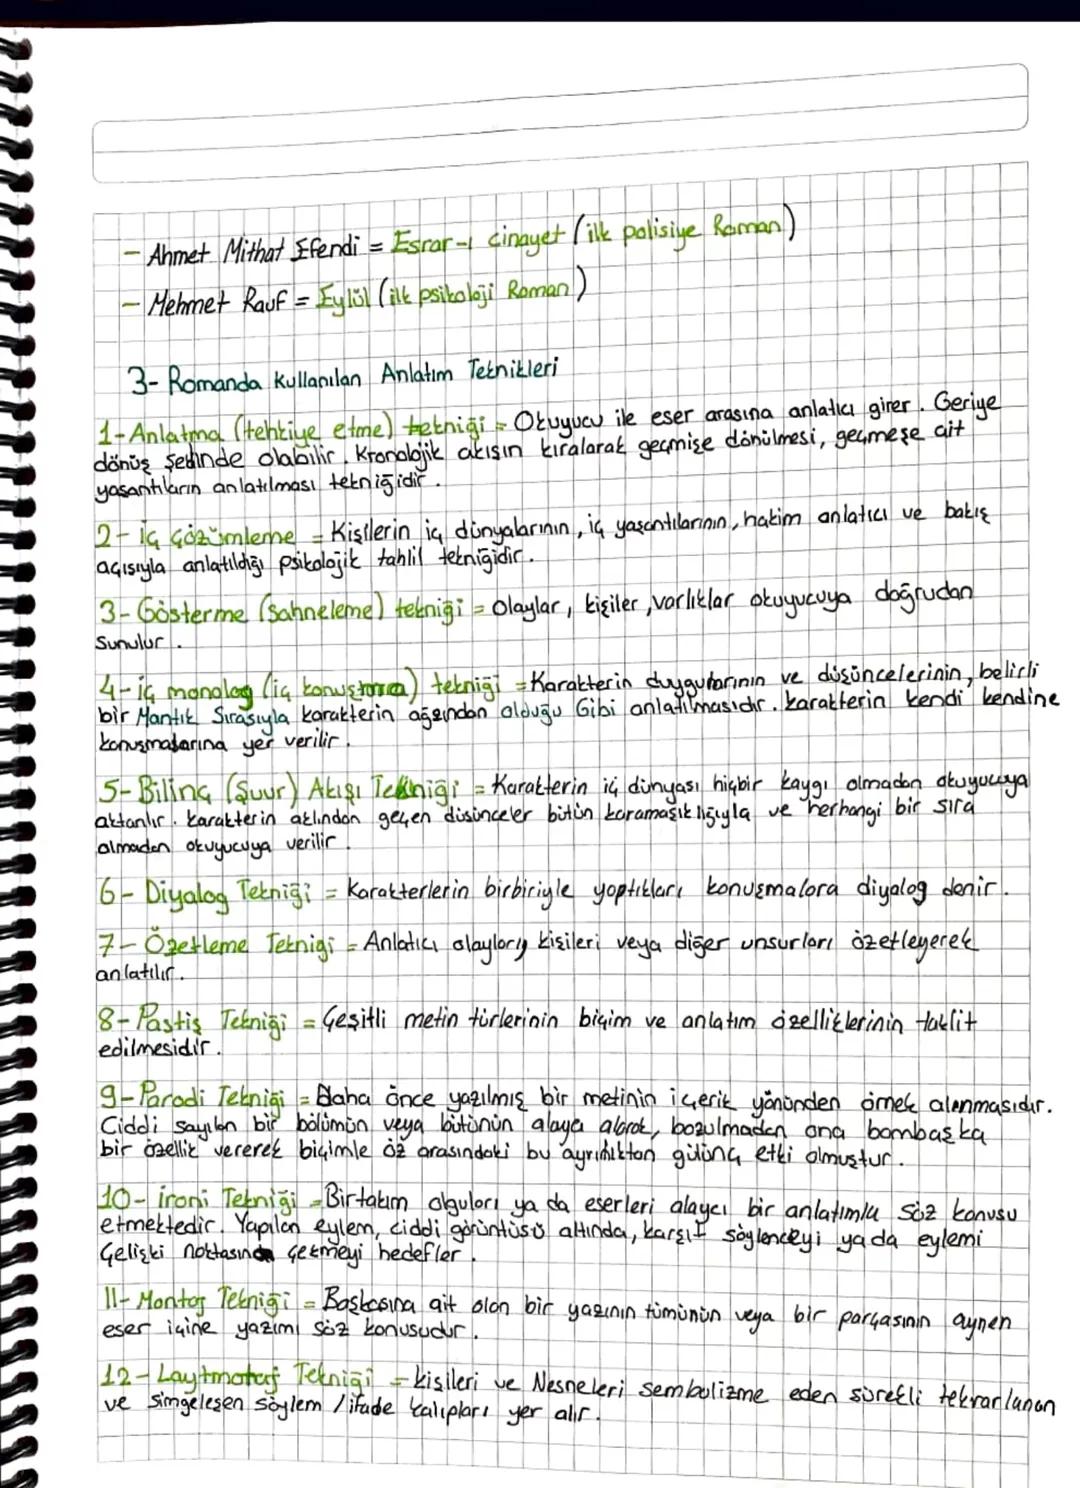 - Ahmet Mithat Efendi = Esrar-ı cinayet (ilk polisiye Roman)
- Mehmet Rauf = Eylül (ilk psikoloji Roman)
3- Romanda Kullanılan Anlatım Teknikleri
1-Anlatma (tehkiye etme) tekniği = Okuyucu ile eser arasına anlatıcı girer. Geriye
dönüş şeklinde olabilir. Kronolojik akışın kıralarak geçmişe dönülmesi, geçmeşe ait
yaşantıların anlatılması tekniğidir.
2- iç çözümleme = Kişilerin iç dünyalarının, iç yaşantılarının, hakim anlatıcı ve bakış
açısıyla anlatıldığı psikolojik tahlil tekniğidir.
3- Gösterme (Sahneleme) tekniği = Olaylar, kişiler, varlıklar okuyucuya doğrudan
Sunulur.
4- iç monolog (iç konuştırma) tekniği = Karakterin duygularının ve düşüncelerinin, belirli
bir Mantık Sırasıyla karakterin ağzından olduğu Gibi anlatılmasıdır. karakterin kendi kendine
konuşmalarına yer verilir.
5- Bilinç (Şuur) Akışı Tekniği = Karakterin iç dünyası hiçbir kaygı olmadan okuyucuya
aktarılır. karakterin aklından geçen düşünceler bütün karamaşıklığıyla ve herhangi bir sıra
olmadan okuyucuya verilir.
6- Diyalog Tekniği = Karakterlerin birbiriyle yaptıkları konuşmalara diyalog denir.
7- Özetleme Tekniği = Anlatıcı olayları, kişileri veya diğer unsurları özetleyerek
anlatılır.
8- Pastiş Tekniği = Çeşitli metin türlerinin biçim ve anlatım özelliklerinin taklit
edilmesidir.
9- Parodi Tekniği = Daha önce yazılmış bir metinin içerik yönünden örnek alınmasıdır.
Ciddi sayılan bir bölümün veya bütünün alaya alarak, bozulmadan ona bambaşka
bir özellik vererek biçimle öz arasındaki bu ayrılıktan gülünç etki olmuştur.
10- ironi Tekniği = Birtakım olguları ya da eserleri alaycı bir anlatımla söz konusu
etmektedir. Yapılan eylem, ciddi görüntüsü altında, karşıt söylenceyi ya da eylemi
Çelişki noktasında çekmeyi hedefler.
11- Montaj Tekniği = Başkasına ait olan bir yazının tümünün veya bir parçasının aynen
eser içine yazımı söz konusudur.
12- Laytmotif Tekniği = kişileri ve Nesneleri sembolizme eden sürekli tekrarlanan
ve Simgeleşen söylem / ifade kalıpları yer alır.